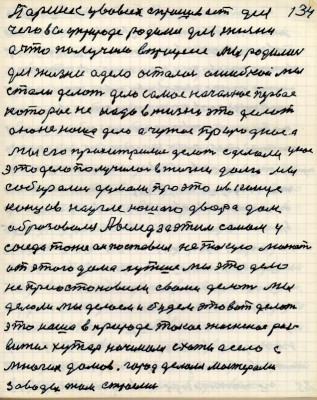 134
Паринес у вовсех спрашивает для
чего вы природе родили для жизни
а что получили в природе мы родили
для жизни а дело остался ошибкой мы
стали делат дело самое началное первое
которое не надо в жизни это делат
оно не наше дело а чужое природное а
мы его приметриле делат сделали у нас
это дело получилос в жизни дело мы
собирали думали про это
концов научие нашого двора дом
образовали А вслед за этим самим у
соседа тоже он поставил не такую
от этого дома лутше мы это дело
не приостоновили своим делат мы
делали мы делаем и будем это вот делат
это наше в природе такое жизненое раз
витие хутар начинали с хаты а село с
многих домов. город делали материали
заводы там строили